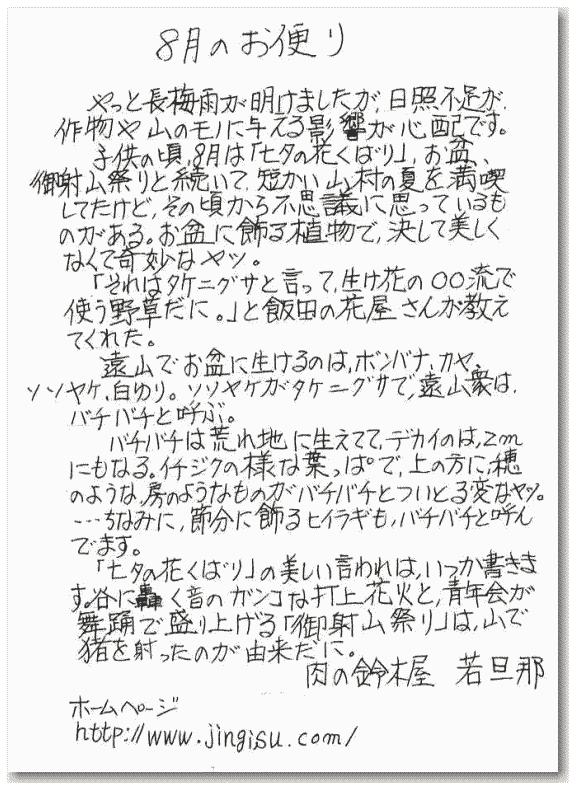 8月のお便り
やっと長梅雨が明けましたが、日照不足が、
作物や山のモノに与える影響が心配です。
子供の頃、8月は「七夕の花くばり」、お盆、
御射山祭りと続いて、短かい山村の夏を満喫
してたけど、その頃から不思議に思っているも
のがある。お盆に飾る植物で、決して美しく
なくて奇妙なヤツ。
「それはタケニグサと言って、生け花の〇〇流で
使う野草だに。」と飯田の花屋さんが教え
てくれた。
遠山でお盆に生けるのは、ボンバナ、カヤ、
ソソヤケ、白ゆり。ソソヤケがタケニグサで、遠山衆は、
バチバチと呼ぶ。
バチバチは荒れ地に生えてて、デカイのは、2m
にもなる。イチジクの様な葉っぱで、上の方に、穂
のような、房のようなものがバチバチとついとる変なヤツ。
…ちなみに、節分に飾るヒイラギも、バチバチと呼ん
でます。
「七夕の花くばり」の美しい言われは、いつか書きま
す。谷に轟く音のガンコな打上花火と、青年会が
舞踊で盛り上げる「御射山祭り」は、山で
猪を射ったのが由来だに。
肉の鈴木屋 若旦那
ホームページ
http://www.jingisu.com/